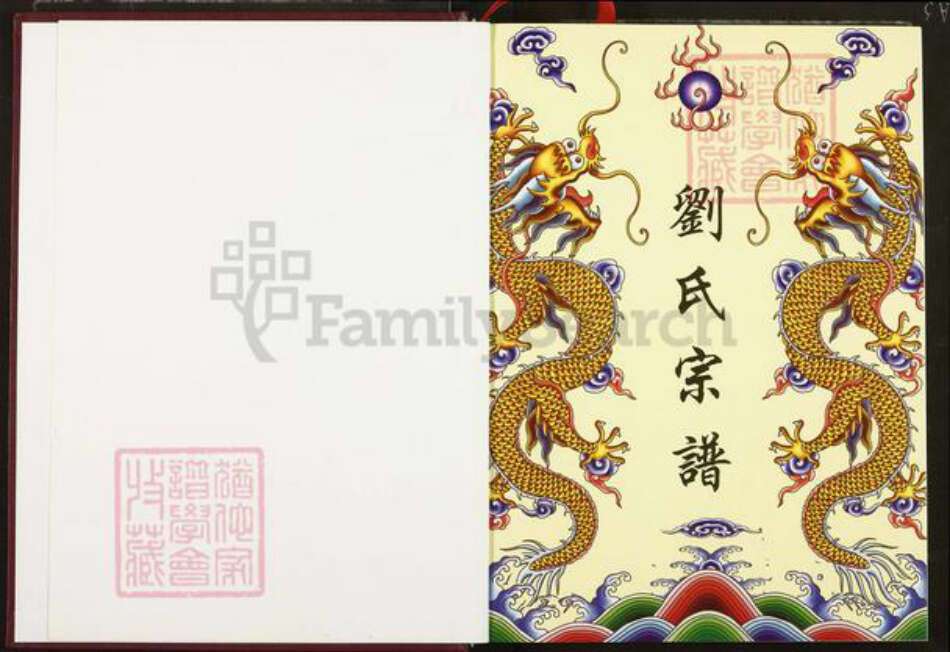 劉氏宗譜
FamilySearch
猶他家
譜學會
收藏
猶他家
譜學會
收藏